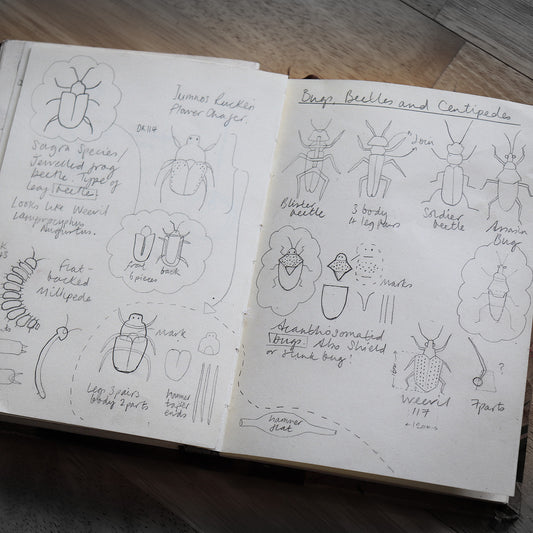 Jumnos Ruckeri
Flower Chafer.
DR 117
Sagra Species/
Jewelled frog
beetle. Type of
leaf beetle.
Looks like Weevil
Lamprocyphus
Augustus.
front
4 pieces
back
Flat-
backed
Millipede
mark
Legs 3 pairs
body 2 parts
hammer
taper
ends
Bugs, Beetles and Centipedes
2cm
Blister
beetle
3 body
4 leg pairs
Soldier
beetle
Assassin
Bug
marks
Acanthosomatid
bugs. Also Shield
or stink bug!
Weevil
117
?
7 parts
hammer
flat